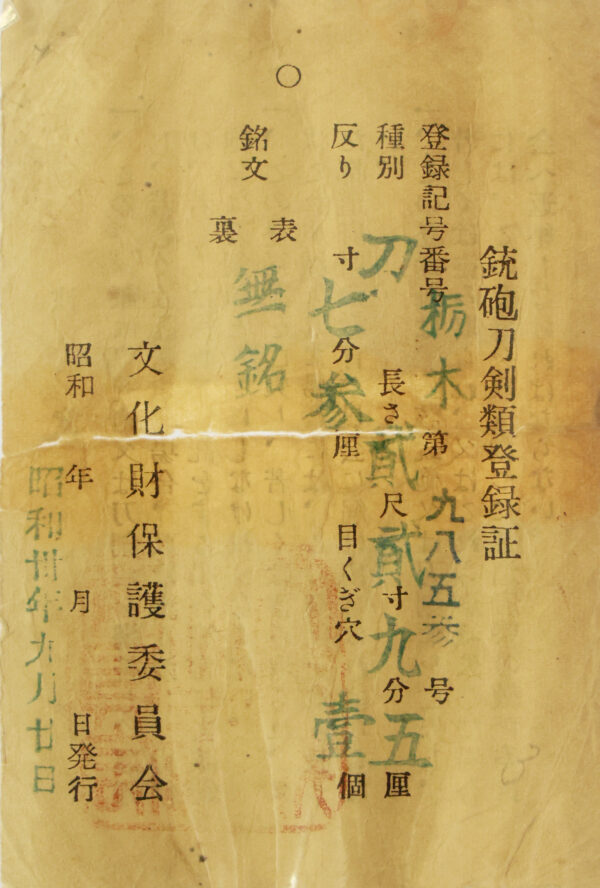 銃砲刀剣類登録証
登録記号番号 栃木 第 九八五参 号
種別 刀 長さ 貳尺貳寸九分五厘
反り 寸七分参厘 目くぎ穴 壹個
銘文 表 無銘
裏
文化財保護委員会
昭和 年 月 日発行
昭和卅年九月廿日